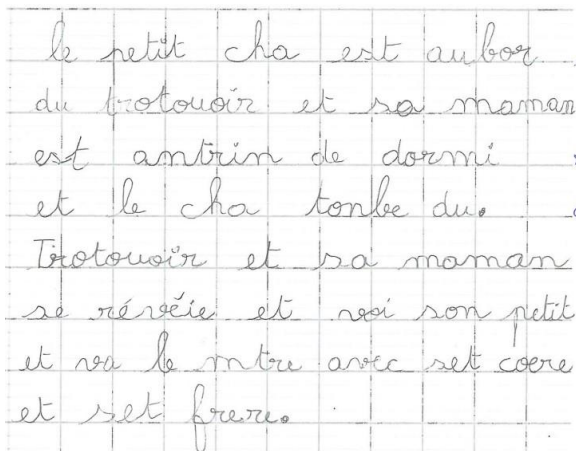 le petit cha est aubor
du trotouoir et sa maman
est antrin de dormi
et le cha tonbe du.
Trotouoir et sa maman
se révèie et voi son petit
et va le mtre avec set coere
et set frere.